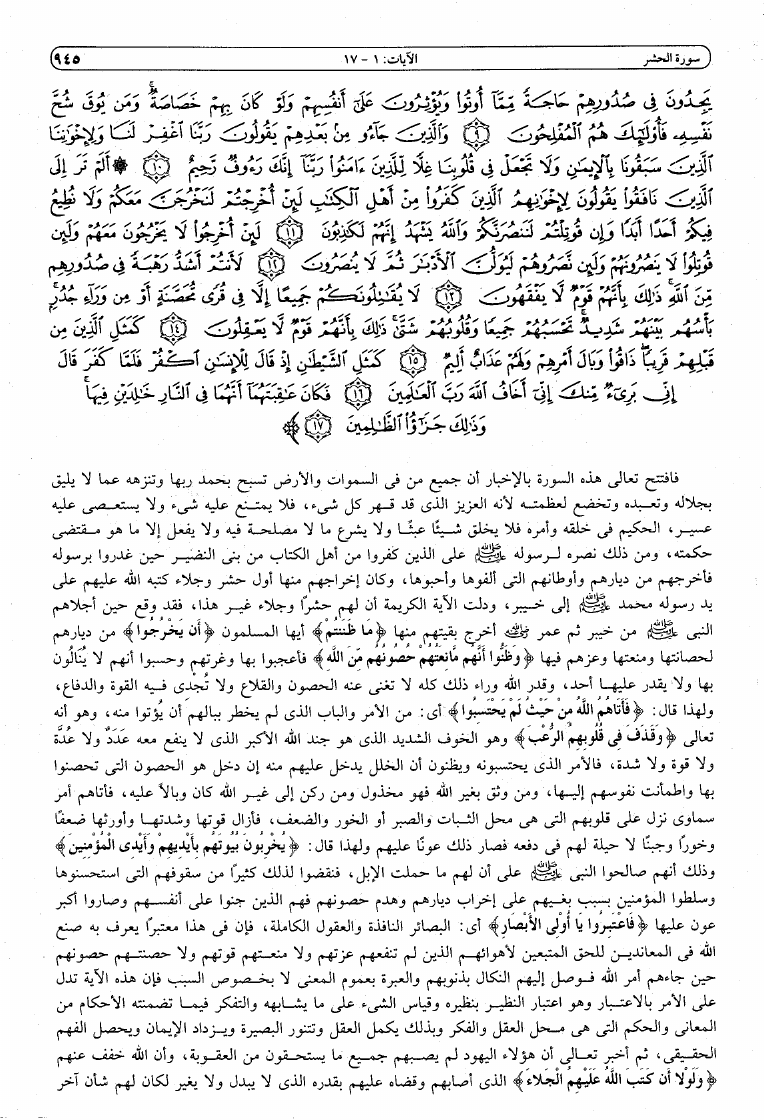 سورة الحشر الآيات: ١ - ١٧ ٩٤٥
يَجِدُونَ فِى صُدُورِهِمْ حَاجَةً مِّمَّآ أُوتُوا۟ وَيُؤْثِرُونَ عَلَىٰٓ أَنفُسِهِمْ وَلَوْ كَانَ بِهِمْ خَصَاصَةٌ ۚ وَمَن يُوقَ شُحَّ
نَفْسِهِۦ فَأُو۟لَـٰٓئِكَ هُمُ ٱلْمُفْلِحُونَ ﴿٩﴾ وَٱلَّذِينَ جَآءُو مِنۢ بَعْدِهِمْ يَقُولُونَ رَبَّنَا ٱغْفِرْ لَنَا وَلِإِخْوَٰنِنَا
ٱلَّذِينَ سَبَقُونَا بِٱلْإِيمَـٰنِ وَلَا تَجْعَلْ فِى قُلُوبِنَا غِلًّا لِّلَّذِينَ ءَامَنُوا۟ رَبَّنَآ إِنَّكَ رَءُوفٌ رَّحِيمٌ ﴿١٠﴾ ۞ أَلَمْ تَرَ إِلَى
ٱلَّذِينَ نَافَقُوا۟ يَقُولُونَ لِإِخْوَٰنِهِمُ ٱلَّذِينَ كَفَرُوا۟ مِنْ أَهْلِ ٱلْكِتَـٰبِ لَئِنْ أُخْرِجْتُمْ لَنَخْرُجَنَّ مَعَكُمْ وَلَا نُطِيعُ
فِيكُمْ أَحَدًا أَبَدًا وَإِن قُوتِلْتُمْ لَنَنصُرَنَّكُمْ وَٱللَّهُ يَشْهَدُ إِنَّهُمْ لَكَـٰذِبُونَ ﴿١١﴾ لَئِنْ أُخْرِجُوا۟ لَا يَخْرُجُونَ مَعَهُمْ وَلَئِن
قُوتِلُوا۟ لَا يَنصُرُونَهُمْ وَلَئِن نَّصَرُوهُمْ لَيُوَلُّنَّ ٱلْأَدْبَـٰرَ ثُمَّ لَا يُنصَرُونَ ﴿١٢﴾ لَأَنتُمْ أَشَدُّ رَهْبَةً فِى صُدُورِهِم
مِّنَ ٱللَّهِ ۚ ذَٰلِكَ بِأَنَّهُمْ قَوْمٌ لَّا يَفْقَهُونَ ﴿١٣﴾ لَا يُقَـٰتِلُونَكُمْ جَمِيعًا إِلَّا فِى قُرًى مُّحَصَّنَةٍ أَوْ مِن وَرَآءِ جُدُرٍۭ ۚ
بَأْسُهُم بَيْنَهُمْ شَدِيدٌ ۚ تَحْسَبُهُمْ جَمِيعًا وَقُلُوبُهُمْ شَتَّىٰ ۚ ذَٰلِكَ بِأَنَّهُمْ قَوْمٌ لَّا يَعْقِلُونَ ﴿١٤﴾ كَمَثَلِ ٱلَّذِينَ مِن
قَبْلِهِمْ قَرِيبًا ۖ ذَاقُوا۟ وَبَالَ أَمْرِهِمْ وَلَهُمْ عَذَابٌ أَلِيمٌ ﴿١٥﴾ كَمَثَلِ ٱلشَّيْطَـٰنِ إِذْ قَالَ لِلْإِنسَـٰنِ ٱكْفُرْ فَلَمَّا كَفَرَ قَالَ
إِنِّى بَرِىٓءٌ مِّنكَ إِنِّىٓ أَخَافُ ٱللَّهَ رَبَّ ٱلْعَـٰلَمِينَ ﴿١٦﴾ فَكَانَ عَـٰقِبَتَهُمَآ أَنَّهُمَا فِى ٱلنَّارِ خَـٰلِدَيْنِ فِيهَا ۚ
وَذَٰلِكَ جَزَٰٓؤُا۟ ٱلظَّـٰلِمِينَ ﴿١٧﴾ ﴾
فافتتح تعالى هذه السورة بالإخبار أن جميع من فى السموات والأرض تسبح بحمد ربها وتنزهه عما لا يليق
بجلاله وتعبده وتخضع لعظمته لأنه العزيز الذى قد قهر كل شىء، فلا يمتنع عليه شىء ولا يستعصى عليه
عسير، الحكيم فى خلقه وأمره فلا يخلق شيئًا عبثًا ولا يشرع ما لا مصلحة فيه ولا يفعل إلا ما هو مقتضى
حكمته، ومن ذلك نصره لرسوله ﷺ على الذين كفروا من أهل الكتاب من بنى النضير حين غدروا برسوله
فأخرجهم من ديارهم وأوطانهم التى ألفوها وأحبوها، وكان إخراجهم منها أول حشر وجلاء كتبه الله عليهم على
يد رسوله محمد ﷺ إلى خيبر، ودلت الآية الكريمة أن لهم حشرًا وجلاء غير هذا، فقد وقع حين أجلاهم
النبى ﷺ من خيبر ثم عمر رضي الله عنه أخرج بقيتهم منها ﴿مَا ظَنَنتُمْ﴾ أيها المسلمون ﴿أَن يَخْرُجُوا﴾ من ديارهم
لحصانتها ومنعتها وعزهم فيها ﴿وَظَنُّوا أَنَّهُم مَّانِعَتُهُمْ حُصُونُهُم مِّنَ اللَّهِ﴾ فأعجبوا بها وغرتهم وحسبوا أنهم لا يُنَالُون
بها ولا يقدر عليها أحد، وقدر الله وراء ذلك كله لا تغنى عنه الحصون والقلاع ولا تُجْدى فيه القوة والدفاع،
ولهذا قال: ﴿فَأَتَاهُمُ اللَّهُ مِنْ حَيْثُ لَمْ يَحْتَسِبُوا﴾ أى: من الأمر والباب الذى لم يخطر ببالهم أن يُؤتوا منه، وهو أنه
تعالى ﴿وَقَذَفَ فِى قُلُوبِهِمُ الرُّعْبَ﴾ وهو الخوف الشديد الذى هو جند الله الأكبر الذى لا ينفع معه عَدَدٌ ولا عُدَّة
ولا قوة ولا شدة، فالأمر الذى يحتسبونه ويظنون أن الخلل يدخل عليهم منه إن دخل هو الحصون التى تحصنوا
بها واطمأنت نفوسهم إليها، ومن وثق بغير الله فهو مخذول ومن ركن إلى غير الله كان وبالاً عليه، فأتاهم أمر
سماوى نزل على قلوبهم التى هى محل الثبات والصبر أو الخور والضعف، فأزال قوتها وشدتها وأورثها ضعفًا
وخورًا وجبنًا لا حيلة لهم فى دفعه فصار ذلك عونًا عليهم ولهذا قال: ﴿يُخْرِبُونَ بُيُوتَهُم بِأَيْدِيهِمْ وَأَيْدِى الْمُؤْمِنِينَ﴾
وذلك أنهم صالحوا النبى ﷺ على أن لهم ما حملت الإبل، فنقضوا لذلك كثيرًا من سقوفهم التى استحسنوها
وسلطوا المؤمنين بسبب بغيهم على إخراب ديارهم وهدم حصونهم فهم الذين جنوا على أنفسهم وصاروا أكبر
عون عليها ﴿فَاعْتَبِرُوا يَا أُولِى الأَبْصَارِ﴾ أى: البصائر النافذة والعقول الكاملة، فإن فى هذا معتبرًا يعرف به صنع
الله فى المعاندين للحق المتبعين لأهوائهم الذين لم تنفعهم عزتهم ولا منعتهم قوتهم ولا حصنتهم حصونهم
حين جاءهم أمر الله فوصل إليهم النكال بذنوبهم والعبرة بعموم المعنى لا بخصوص السبب فإن هذه الآية تدل
على الأمر بالاعتبار وهو اعتبار النظير بنظيره وقياس الشىء على ما يشابهه والتفكر فيما تضمنته الأحكام من
المعانى والحكم التى هى محل العقل والفكر وبذلك يكمل العقل وتتنور البصيرة ويزداد الإيمان ويحصل الفهم
الحقيقى، ثم أخبر تعالى أن هؤلاء اليهود لم يصبهم جميع ما يستحقون من العقوبة، وأن الله خفف عنهم
﴿وَلَوْلا أَن كَتَبَ اللَّهُ عَلَيْهِمُ الْجَلاءَ﴾ الذى أصابهم وقضاه عليهم بقدره الذى لا يبدل ولا يغير لكان لهم شأن آخر